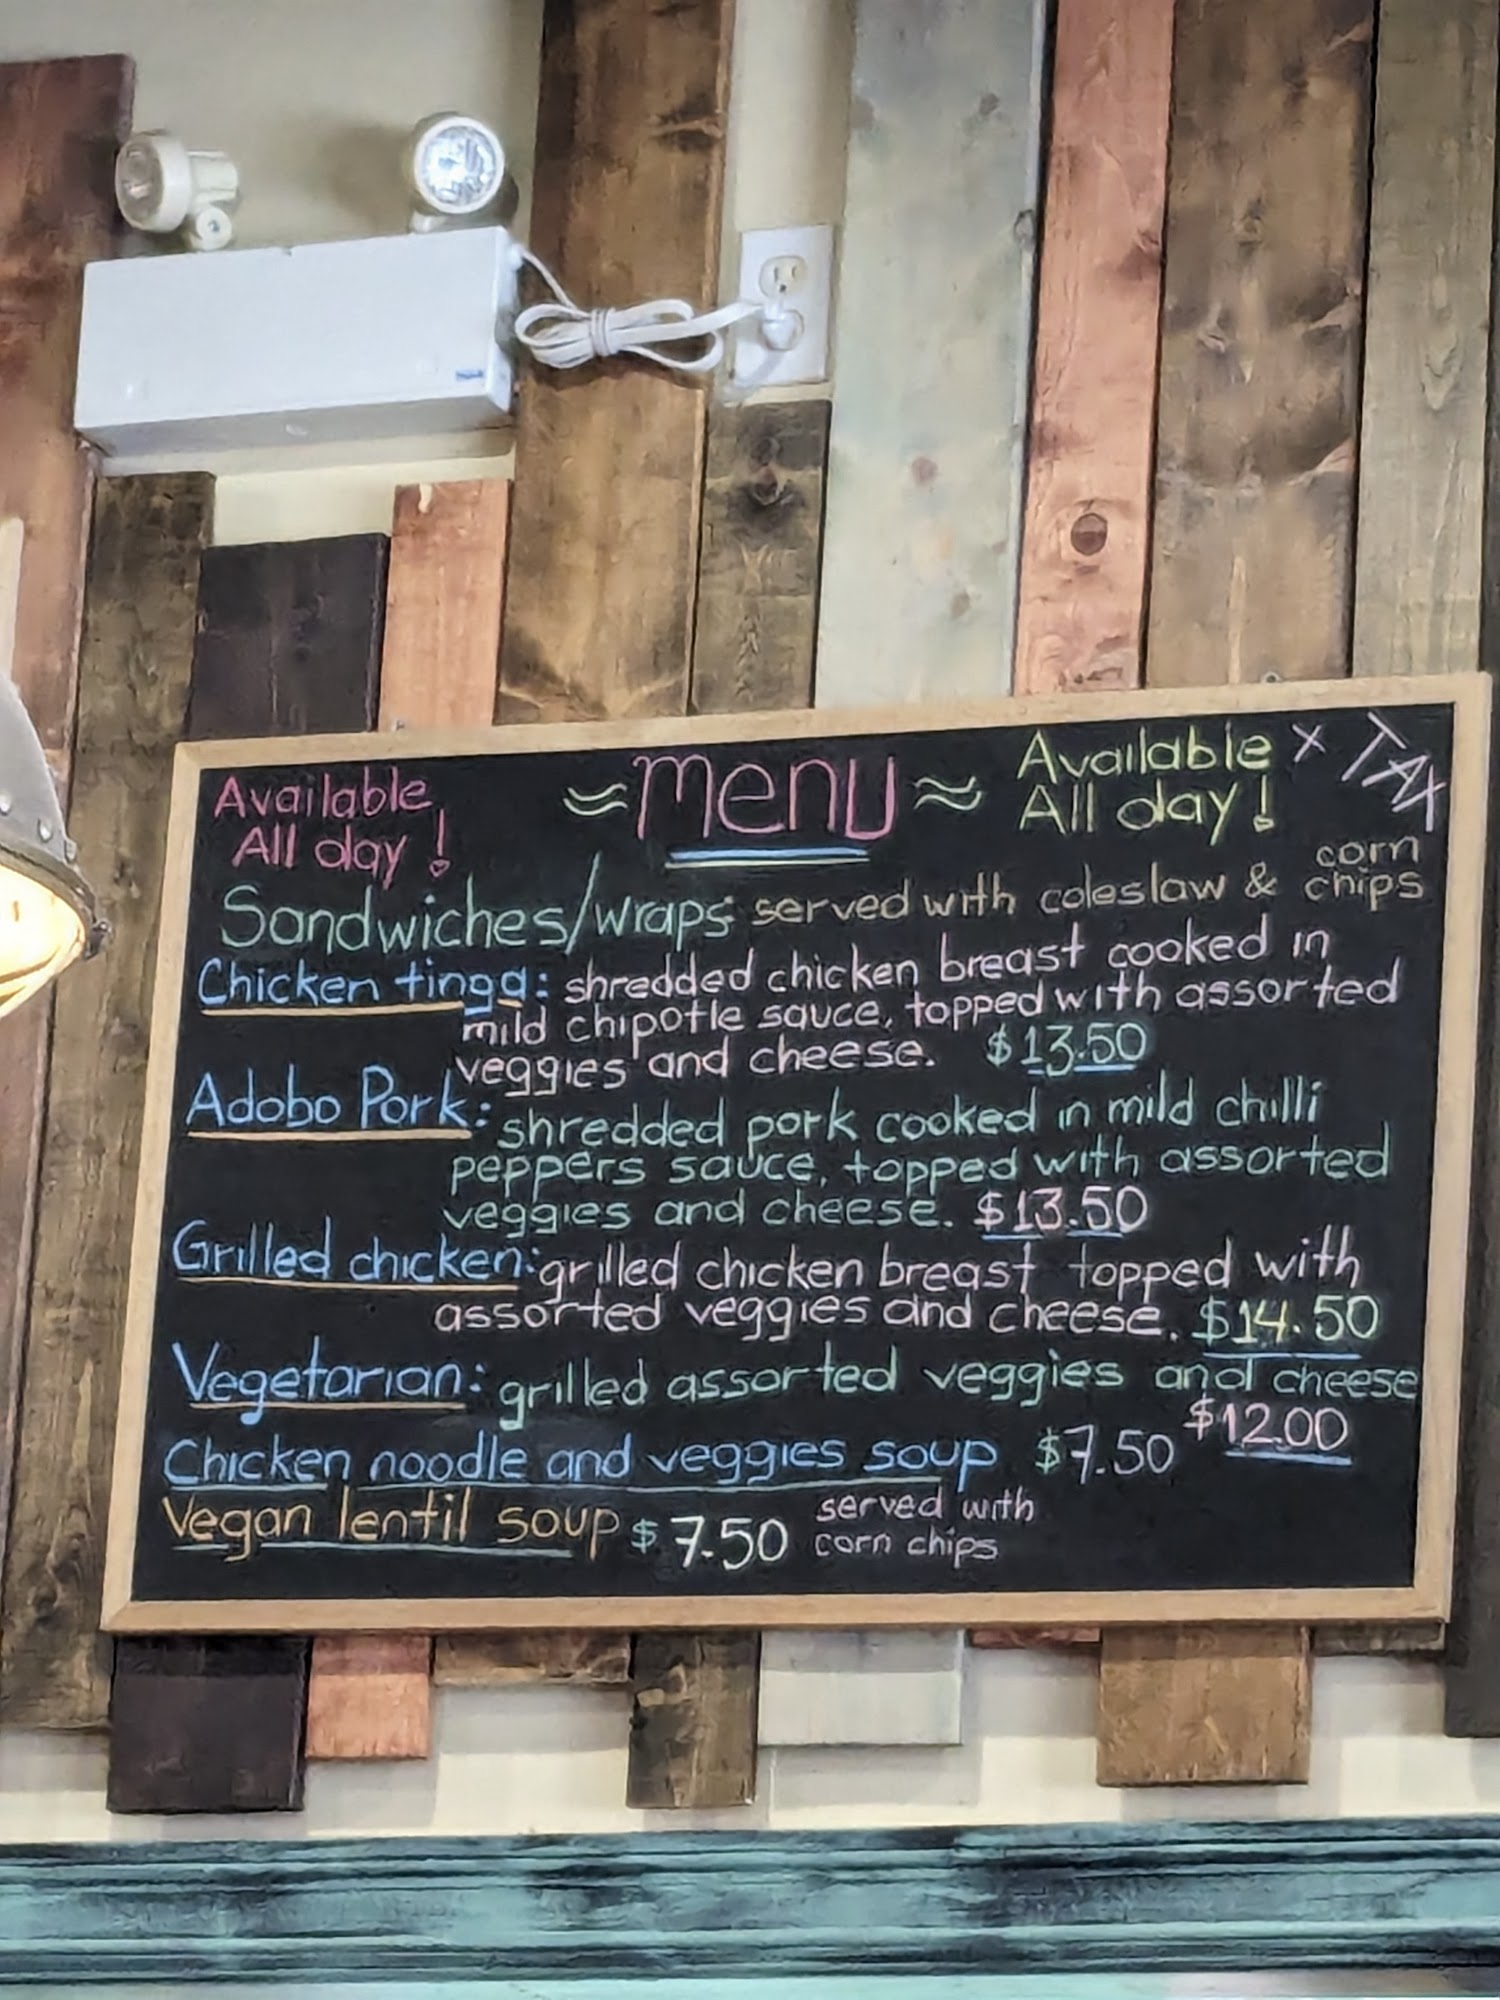 Available
All day!
≈ Menu ≈
Available
All day!
x TAX
Sandwiches/wraps served with coleslaw & corn chips
Chicken tinga: shredded chicken breast cooked in
mild chipotle sauce, topped with assorted
veggies and cheese. $13.50
Adobo Pork: shredded pork cooked in mild chilli
peppers sauce, topped with assorted
veggies and cheese. $13.50
Grilled chicken: grilled chicken breast topped with
assorted veggies and cheese. $14.50
Vegetarian: grilled assorted veggies and cheese
$12.00
Chicken noodle and veggies soup $7.50
Vegan lentil soup $7.50 served with
corn chips